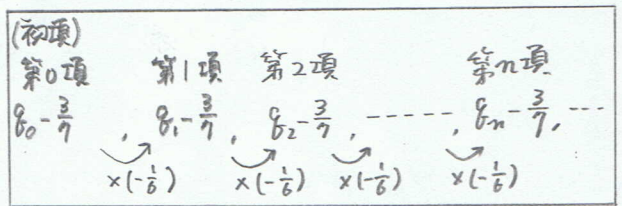 (初項)
第0項 第1項 第2項 第n項
q₀-3/7, q₁-3/7, q₂-3/7, -----, qₙ-3/7, ---
×(-1/6) ×(-1/6) ×(-1/6) ×(-1/6)